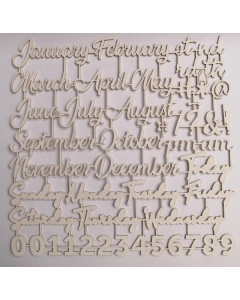 January February st nd
March April May # @
June July August
September October am
November December Today
Sunday Monday Tuesday Friday
Saturday Tuesday Wednesday
0 0 1 1 2 2 3 3 4 5 6 7 8 9